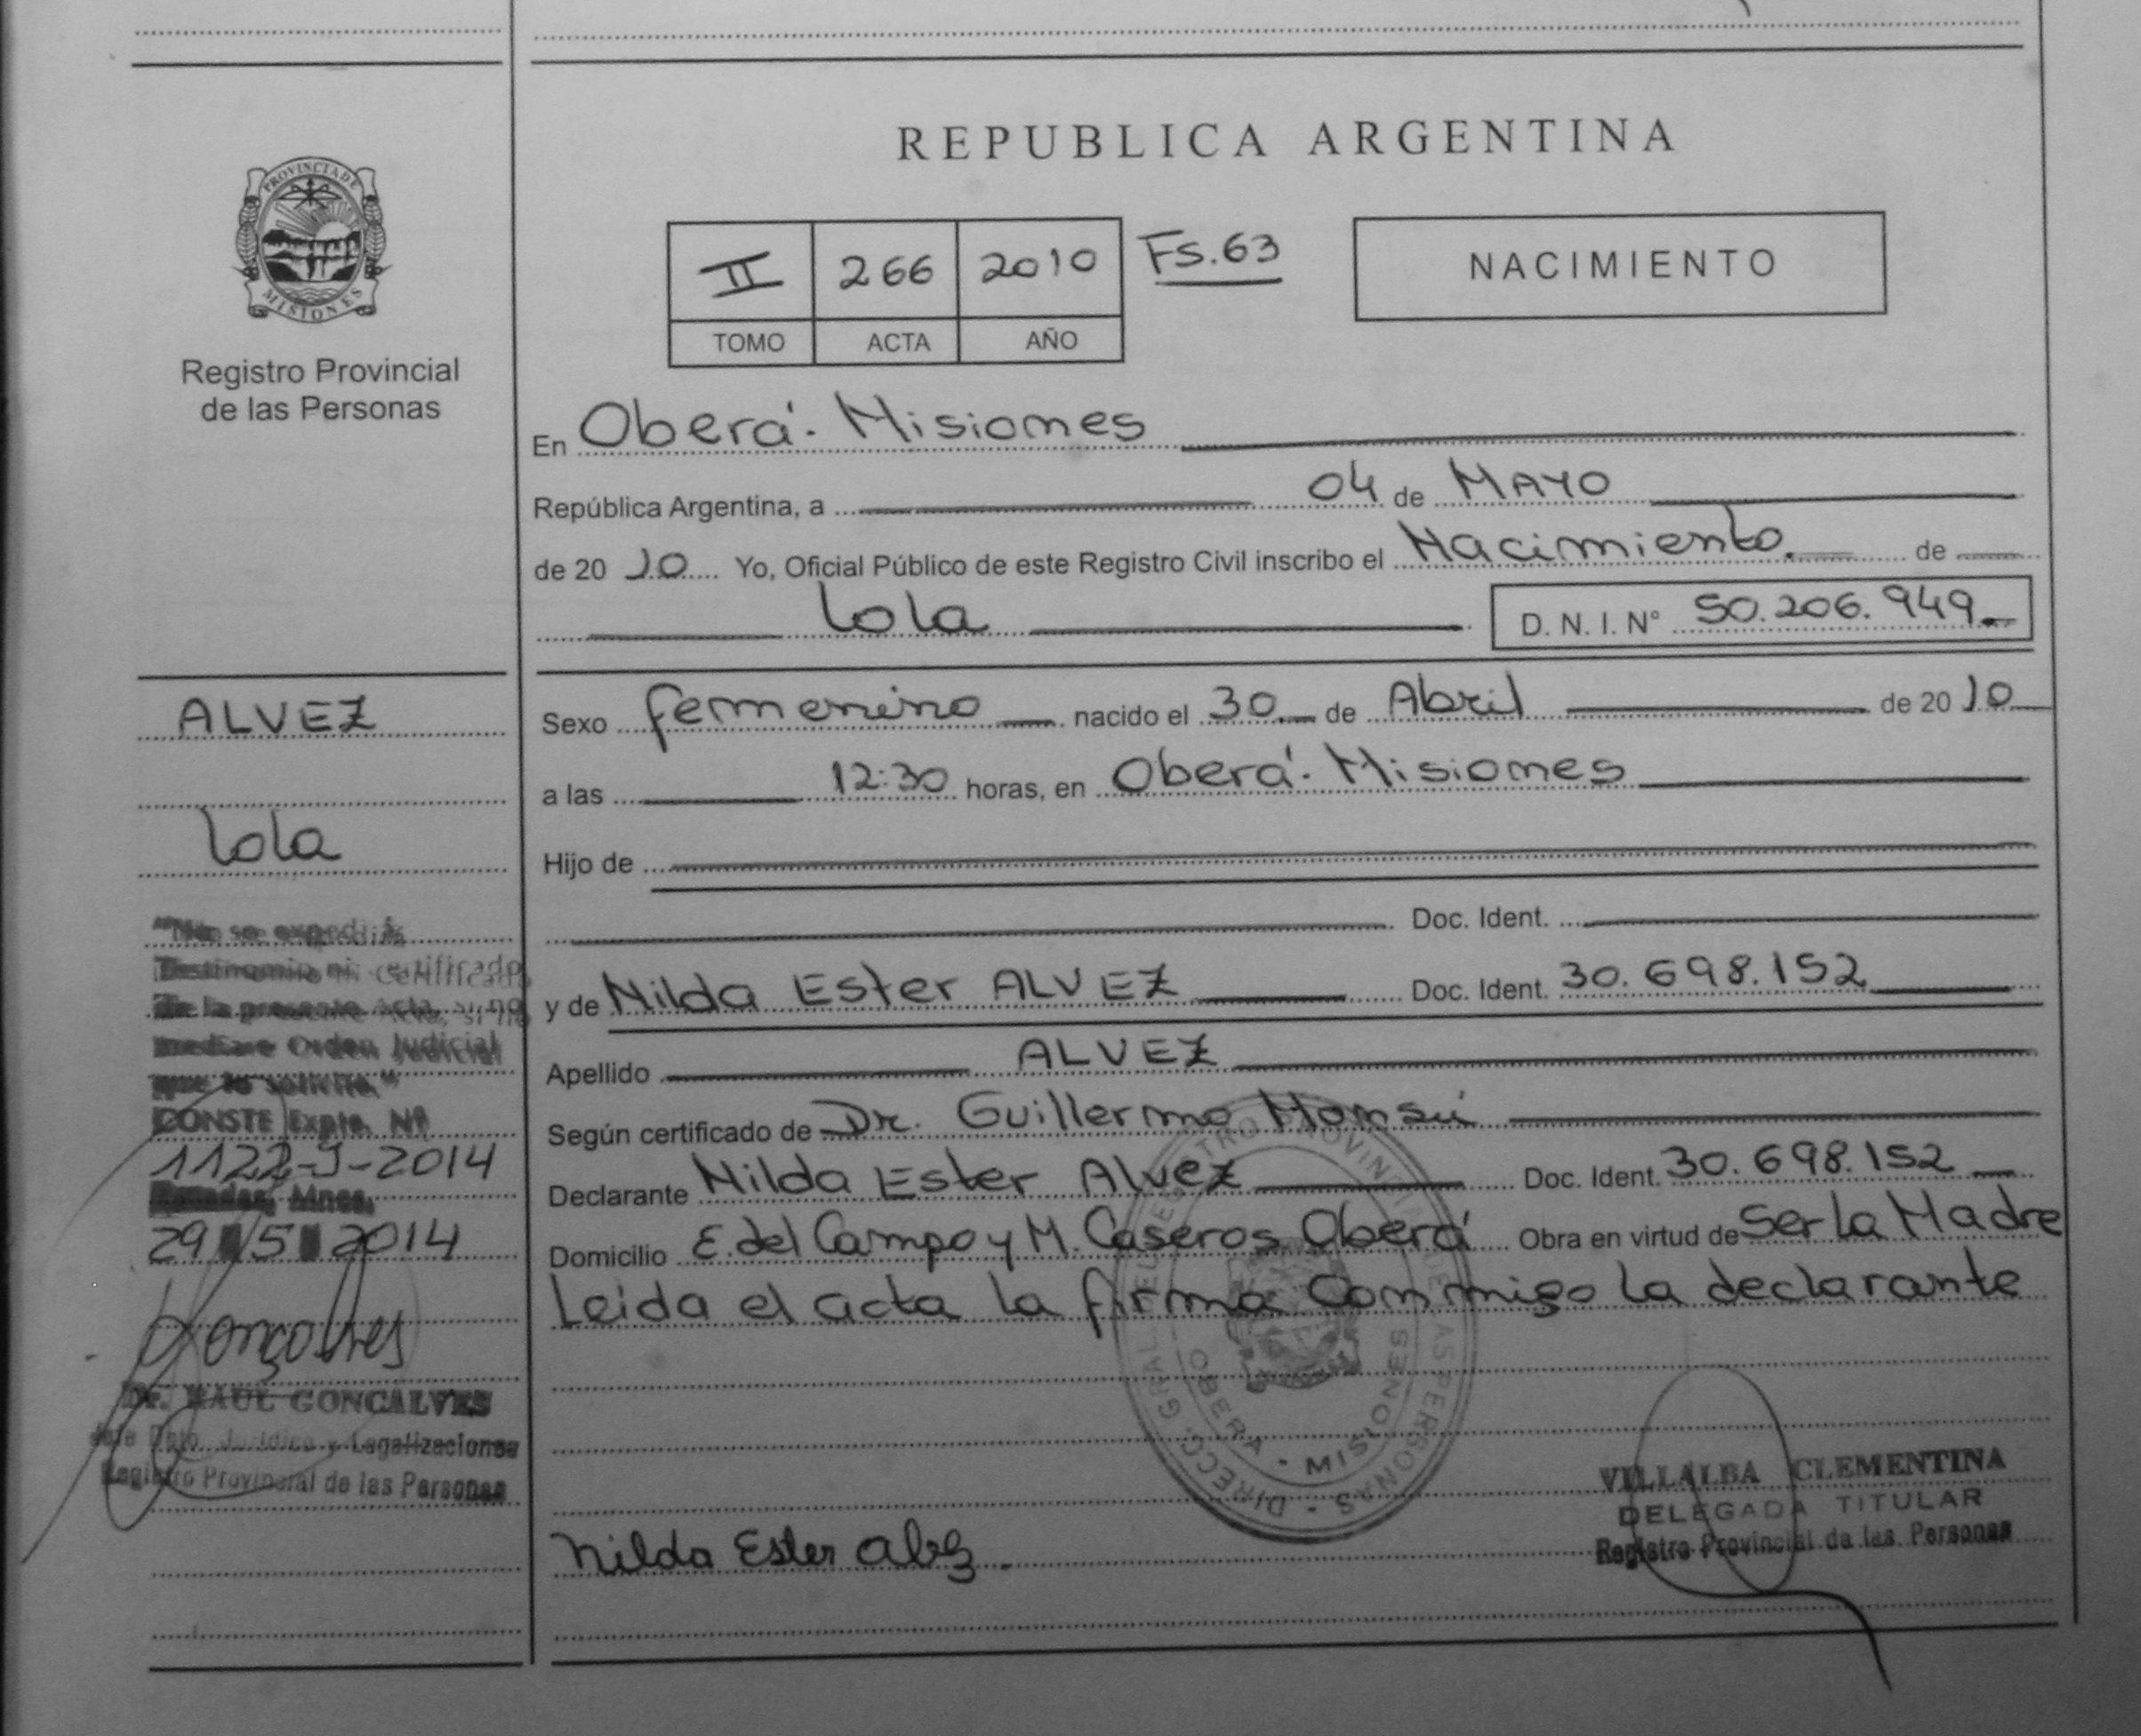 REPUBLICA ARGENTINA
PROVINCIA DE
MISIONES
Registro Provincial
de las Personas
II 266 2010 FS.63
TOMO ACTA AÑO
NACIMIENTO
En Oberá. Misiones
República Argentina, a 04 de MAYO
de 20 10 Yo, Oficial Público de este Registro Civil inscribo el Nacimiento. de
Lola D. N. I. N° 50.206.949
ALVEZ
Lola
"No se expedirá
Testimonio ni certificado
De la presente Acta, si no
mediare Orden Judicial
que lo solicite"
CONSTE Expte. Nº
1122-J-2014
Posadas, Mnes.
29 5 2014
Gonçalves
Dr. RAUL GONCALVES
Jefe Dpto. Jurídico y Legalizaciones
Registro Provincial de las Personas
Sexo femenino nacido el 30 de Abril de 20 10
a las 12:30 horas, en Oberá. Misiones
Hijo de
Doc. Ident.
y de Nilda Ester ALVEZ Doc. Ident. 30.698.152
Apellido ALVEZ
Según certificado de Dr. Guillermo
Declarante Nilda Ester Alvez Doc. Ident. 30.698.152
Domicilio E. del Campo y M. Caseros Oberá Obra en virtud de Ser la Madre
Leida el acta la firma conmigo la declarante
OBERA - MISIONES
VILLALBA CLEMENTINA
DELEGADA TITULAR
Registro Provincial de las Personas
Nilda Ester Alvez